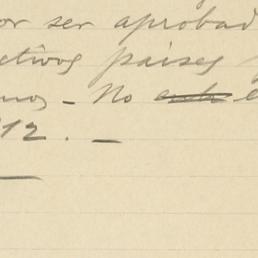 or ser aprobad
ctivos paises
nos - No e
12. -